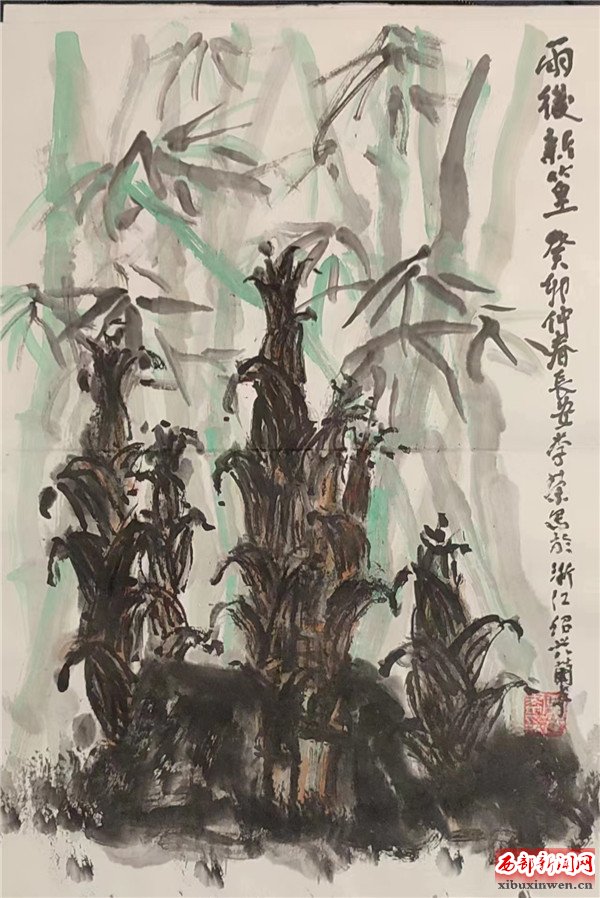 雨後新篁 癸卯仲春長安李荣写於浙江绍兴蘭亭
西部新闻网
xibuxinwen.cn